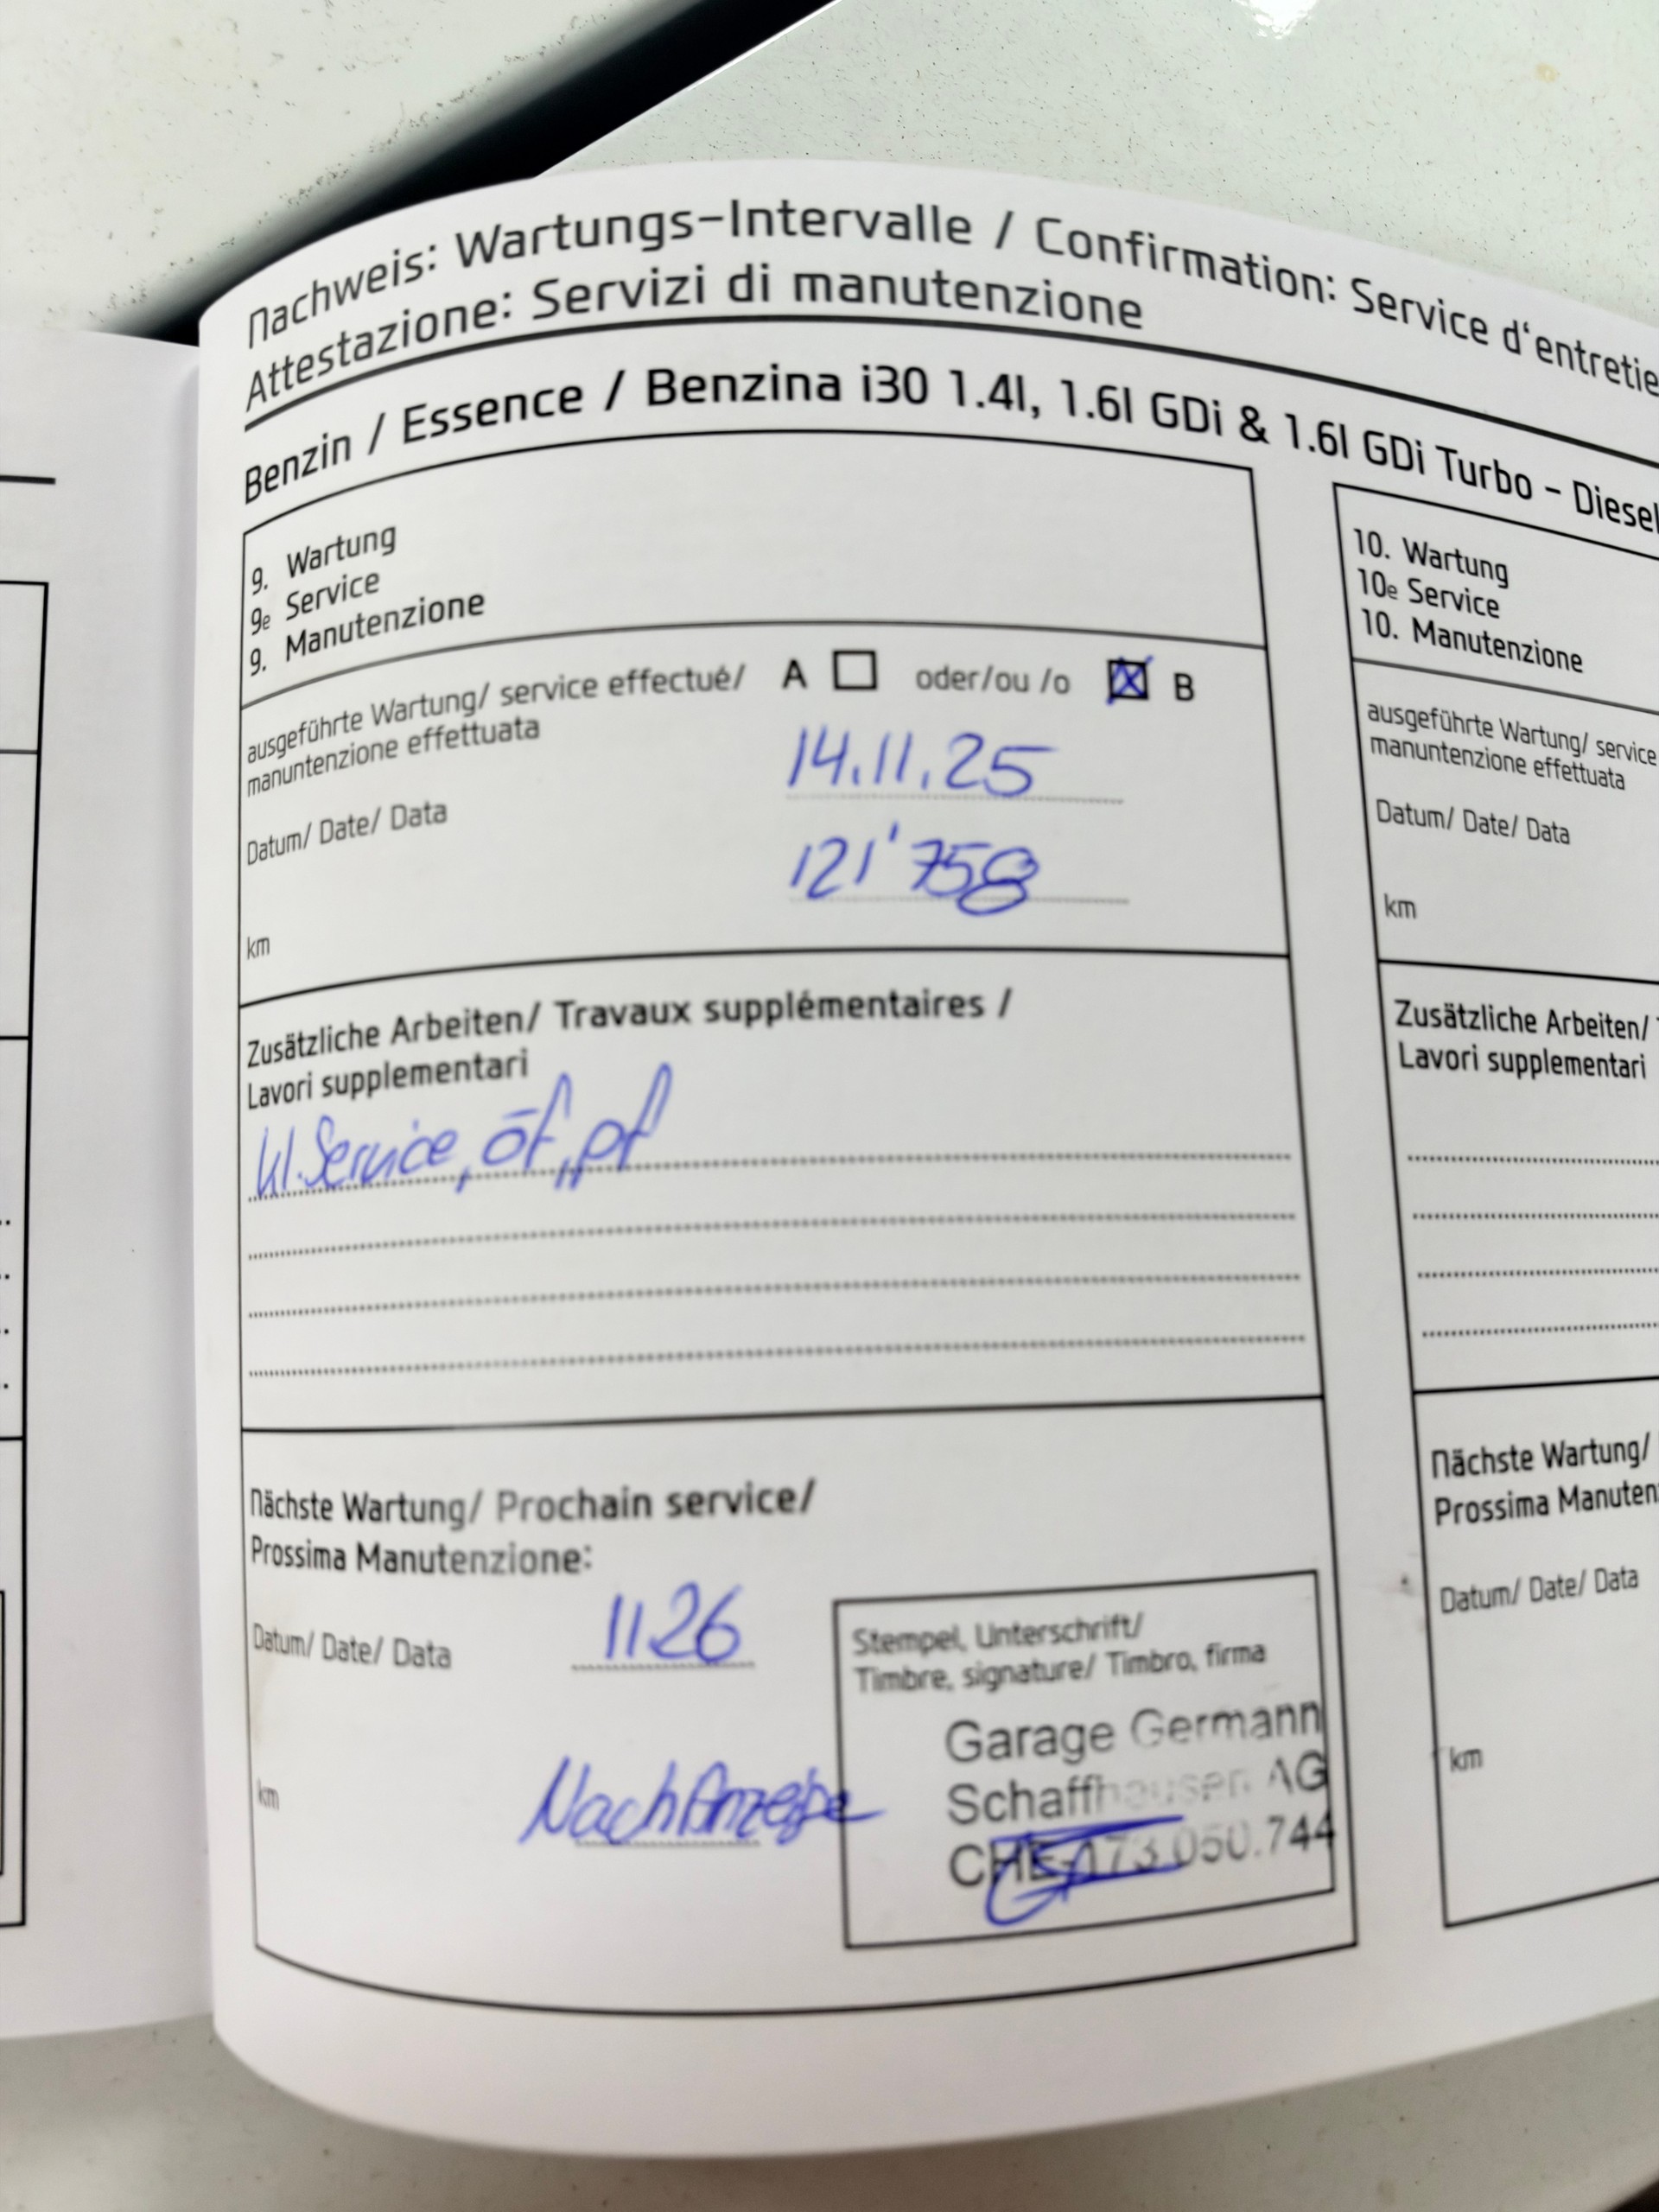 Nachweis: Wartungs-Intervalle / Confirmation: Service d'entretie
Attestazione: Servizi di manutenzione
Benzin / Essence / Benzina i30 1.4l, 1.6l GDi & 1.6l GDi Turbo - Diesel
9. Wartung
9e Service
9. Manutenzione
ausgeführte Wartung/ service effectué/ A oder/ou /o B
manuntenzione effettuata
14.11.25
Datum/ Date/ Data
121'758
km
Zusätzliche Arbeiten/ Travaux supplémentaires /
Lavori supplementari
kl. Service, öf, pf
Nächste Wartung/ Prochain service/
Prossima Manutenzione:
Datum/ Date/ Data 11.26
km Nach Anzeige
Stempel, Unterschrift/
Timbre, signature/ Timbro, firma
Garage Germann
Schaffhausen AG
CHE-173.050.744
10. Wartung
10e Service
10. Manutenzione
ausgeführte Wartung/ service
manuntenzione effettuata
Datum/ Date/ Data
km
Zusätzliche Arbeiten/
Lavori supplementari
Nächste Wartung/
Prossima Manuten
Datum/ Date/ Data
km